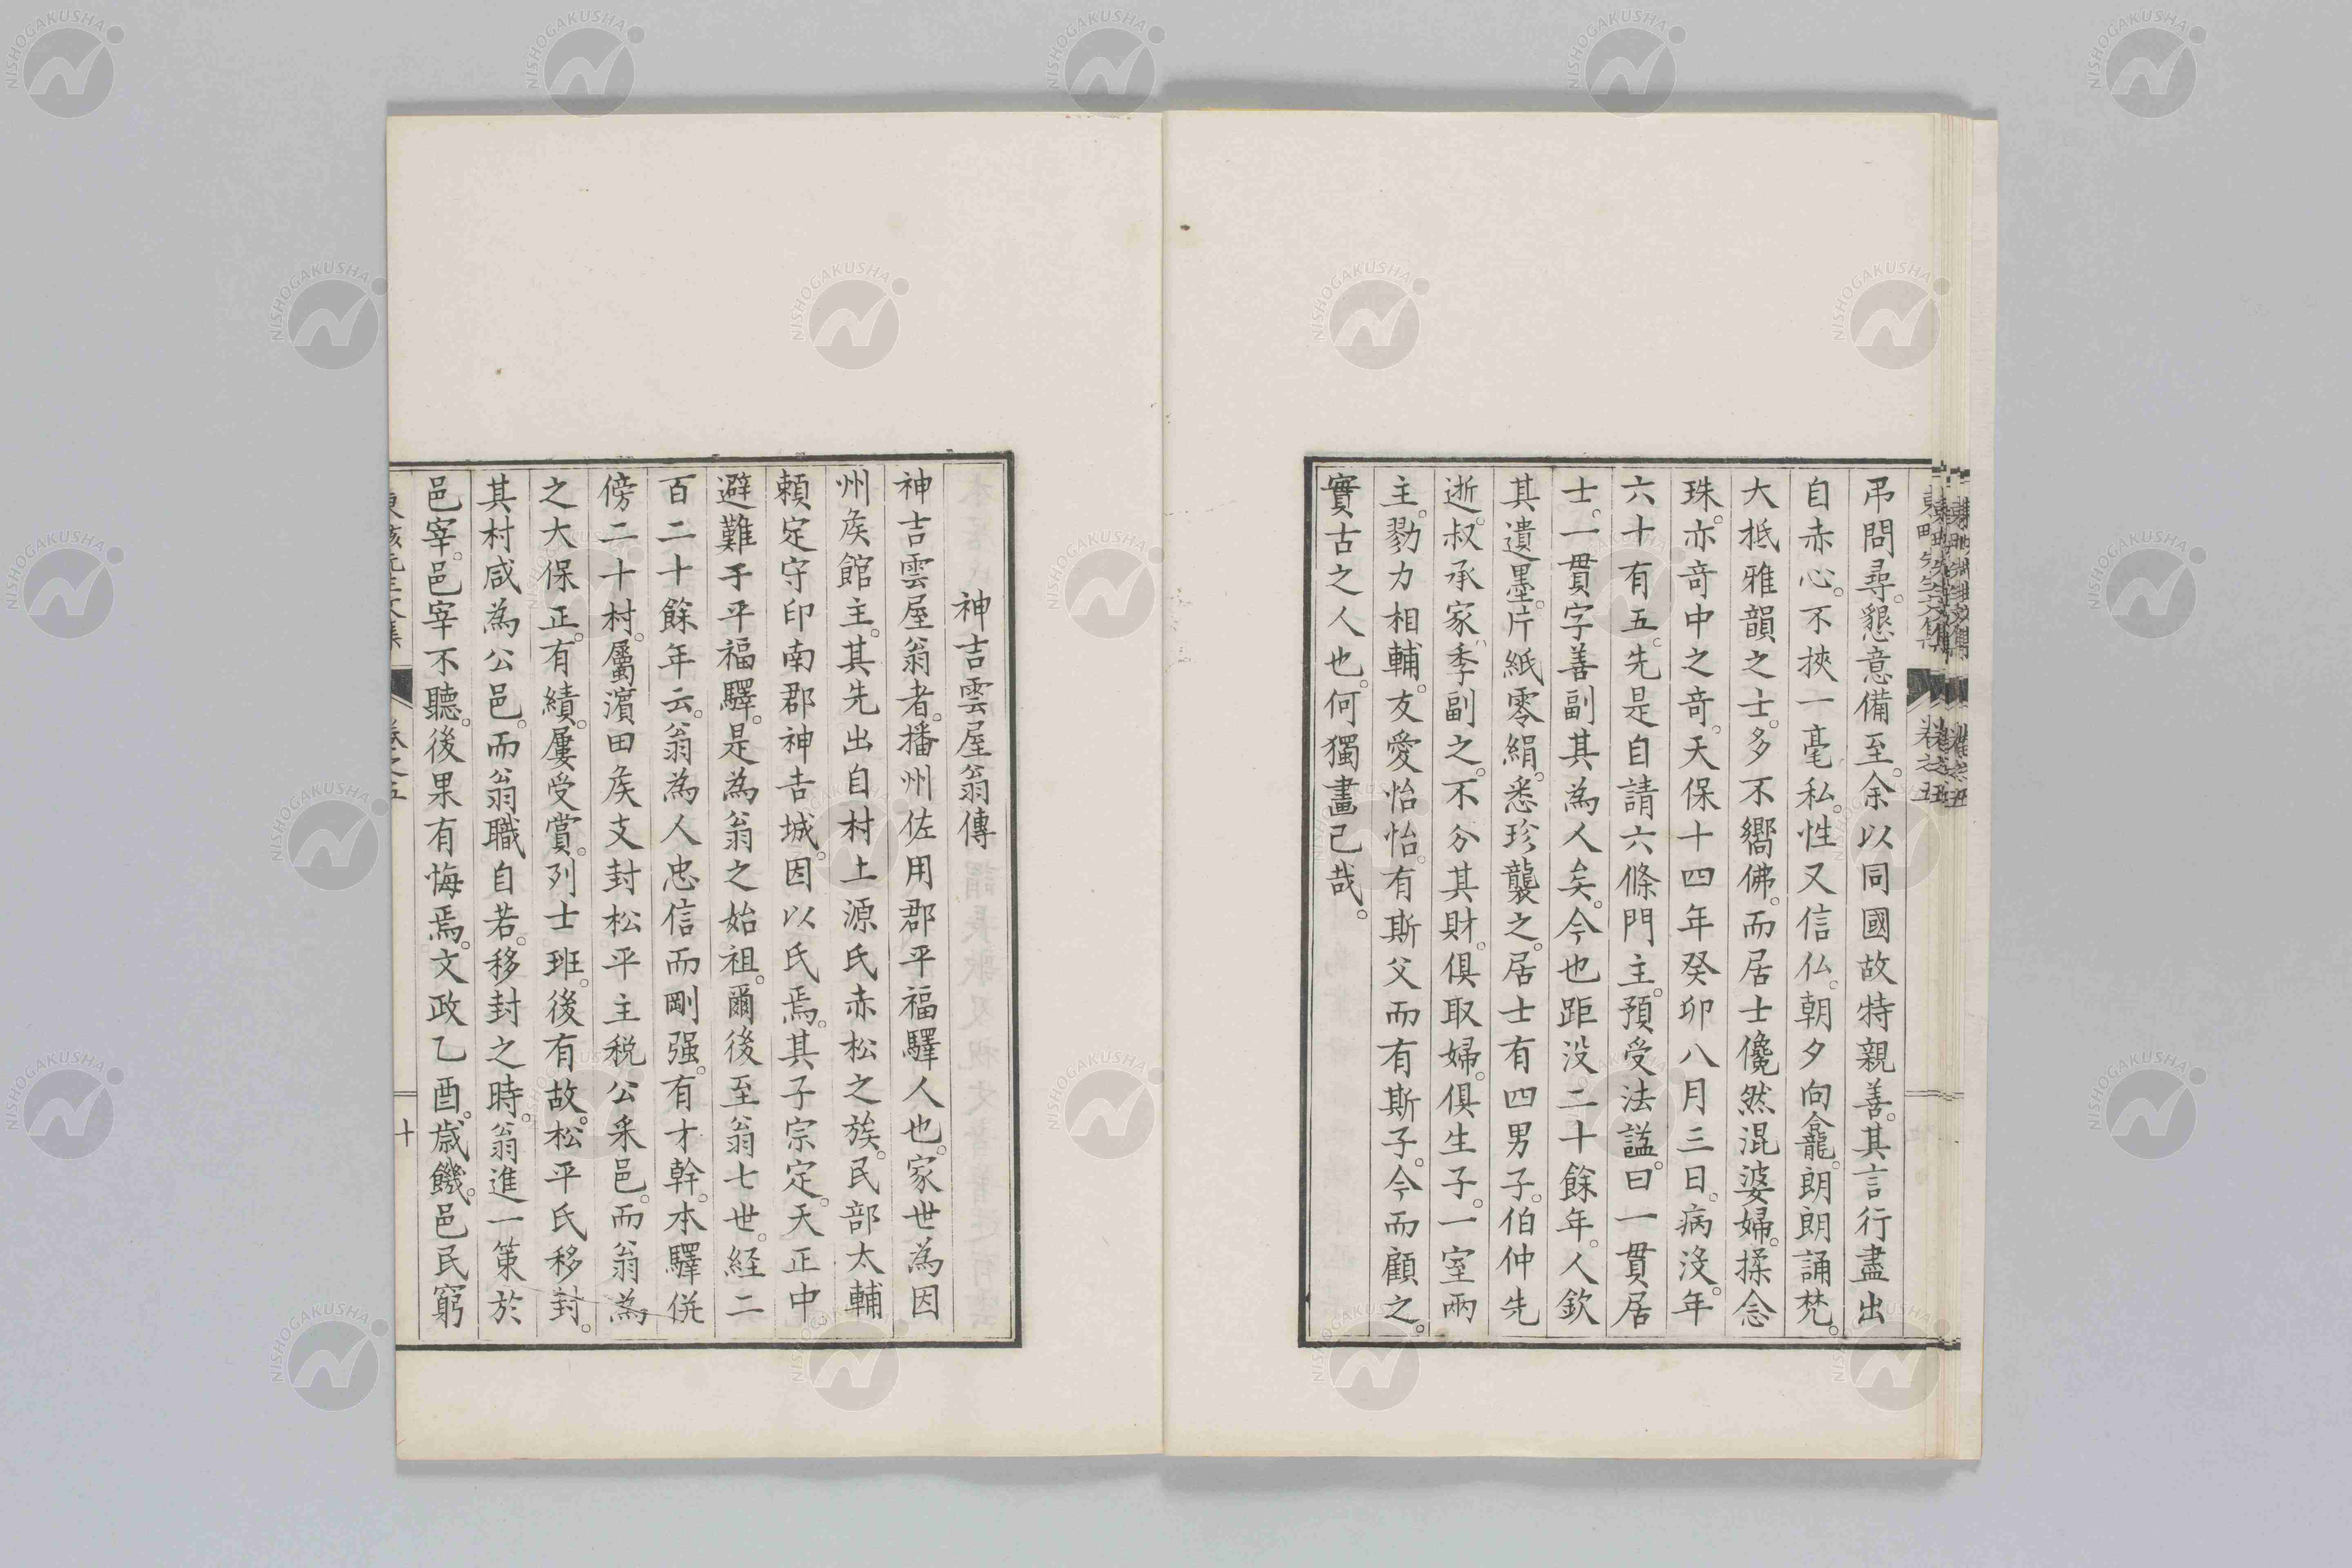 弔問尋。懇意備至。余以同國故特親善。其言行盡出
自赤心。不挾一毫私。性又信仏。朝夕向龕。朗朗誦梵。
大抵雅韻之士。多不嚮佛。而居士儳然混婆婦。揉念
珠。亦竒中之竒。天保十四年癸卯八月三日。病沒。年
六十有五。先是自請六條門主。預受法諡。曰一貫居
士。一貫字善副其為人矣。今也距没二十餘年。人欽
其遺墨。片紙零絹。悉珍襲之。居士有四男子。伯仲先
逝。叔承家季副之。不分其財。俱取婦。俱生子。一室兩
主。勠力相輔。友愛怡怡。有斯父而有斯子。今而顧之。
實古之人也。何獨畫已哉。
神吉雲屋翁傳
神吉雲屋翁者。播州佐用郡平福驛人也。家世為因
州矦館主。其先出自村上源氏赤松之族。民部太輔
頼定守印南郡神吉城。因以氏焉。其子宗定。天正中
避難于平福驛。是為翁之始祖。爾後至翁七世。経二
百二十餘年云。翁為人忠信而剛强。有才幹。本驛併
傍二十村。屬濵田矦支封松平主税公采邑。而翁為
之大保正。有績。屢受賞。列士班。後有故。松平氏移封。
其村咸為公邑。而翁職自若。移封之時。翁進一策於
邑宰。邑宰不聽。後果有悔焉。文政乙酉。歳饑。邑民窮
卷之五
十
NISHOGAKUSHA